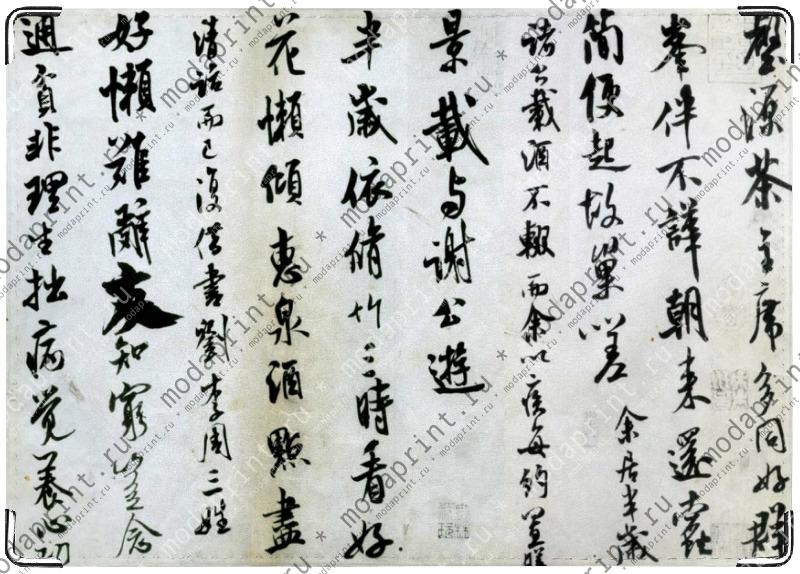 壑源茶主席多同好群
峯伴不譁朝来還蠹
簡便起故巢嗟
余居半歲
諸公載酒不輟而余以疾每約置膳
景載与謝公遊
半歲依脩竹三時看好
花懶傾惠泉酒點盡
清話而已復借書劉李周三姓
好懶難辭友知窮豈念
通貧非理生拙病覺養心功
modaprint.ru